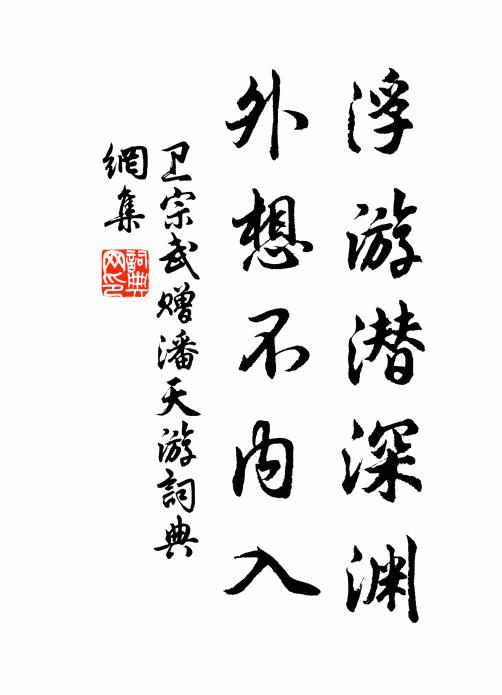 浮游潜深渊
外想不内入
卫宗武赠潘天游詞典
網集
詞典
网印